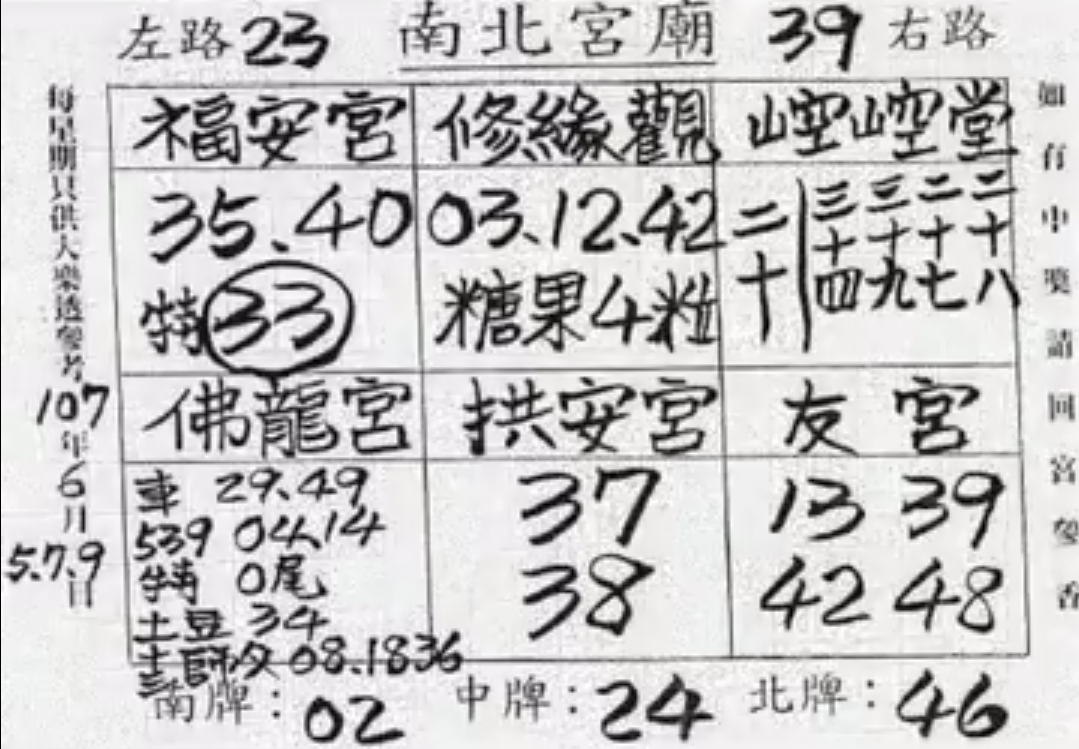 左路 23 南北宮廟 39 右路
每星期只供大樂透參考
107年6月5.7.9日
福安宮
35.40
特 33
修緣觀
03.12.42
糖果4粒
崆崆堂
二十八
二十七
三十九
三十四
二十
佛龍宮
車 29.49
539 04.14
特 0尾
土豆 34
師父 08.1836
拱安宮
37
38
友宮
13 39
42 48
如有中獎請回宮參香
南牌：02 中牌：24 北牌：46